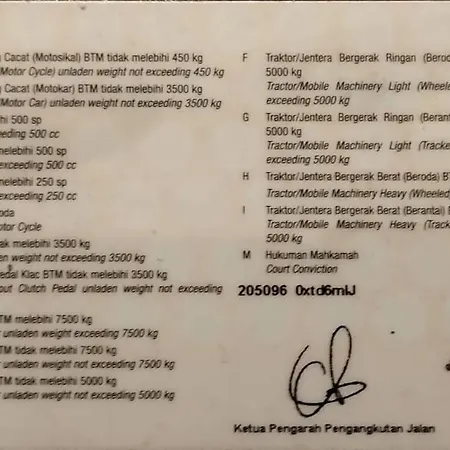 Cacat (Motosikal) BTM tidak melebihi 450 kg
Motor Cycle) unladen weight not exceeding 450 kg
Cacat (Motokar) BTM tidak melebihi 3500 kg
Motor Car) unladen weight not exceeding 3500 kg
500 sp
500 cc
melebihi 500 sp
exceeding 500 cc
melebihi 250 sp
exceeding 250 cc
Motor Cycle
melebihi 3500 kg
weight not exceeding 3500 kg
Pedal Klac BTM tidak melebihi 3500 kg
Clutch Pedal unladen weight not exceeding
BTM melebihi 7500 kg
unladen weight exceeding 7500 kg
BTM tidak melebihi 7500 kg
unladen weight not exceeding 7500 kg
BTM tidak melebihi 5000 kg
unladen weight not exceeding 5000 kg
F Traktor/Jentera Bergerak Ringan
5000 kg
Tractor/Mobile Machinery Light (Wheeled
exceeding 5000 kg
G Traktor/Jentera Bergerak Ringan
5000 kg
Tractor/Mobile Machinery Light
exceeding 5000 kg
H Traktor/Jentera Bergerak Berat (Beroda)
Tractor/Mobile Machinery Heavy (Wheeled
I Traktor/Jentera Bergerak Berat (Berantai)
Tractor/Mobile Machinery Heavy
5000 kg
M Hukuman Mahkamah
Court Conviction
205096
Ketua Pengarah Pengangkutan Jalan